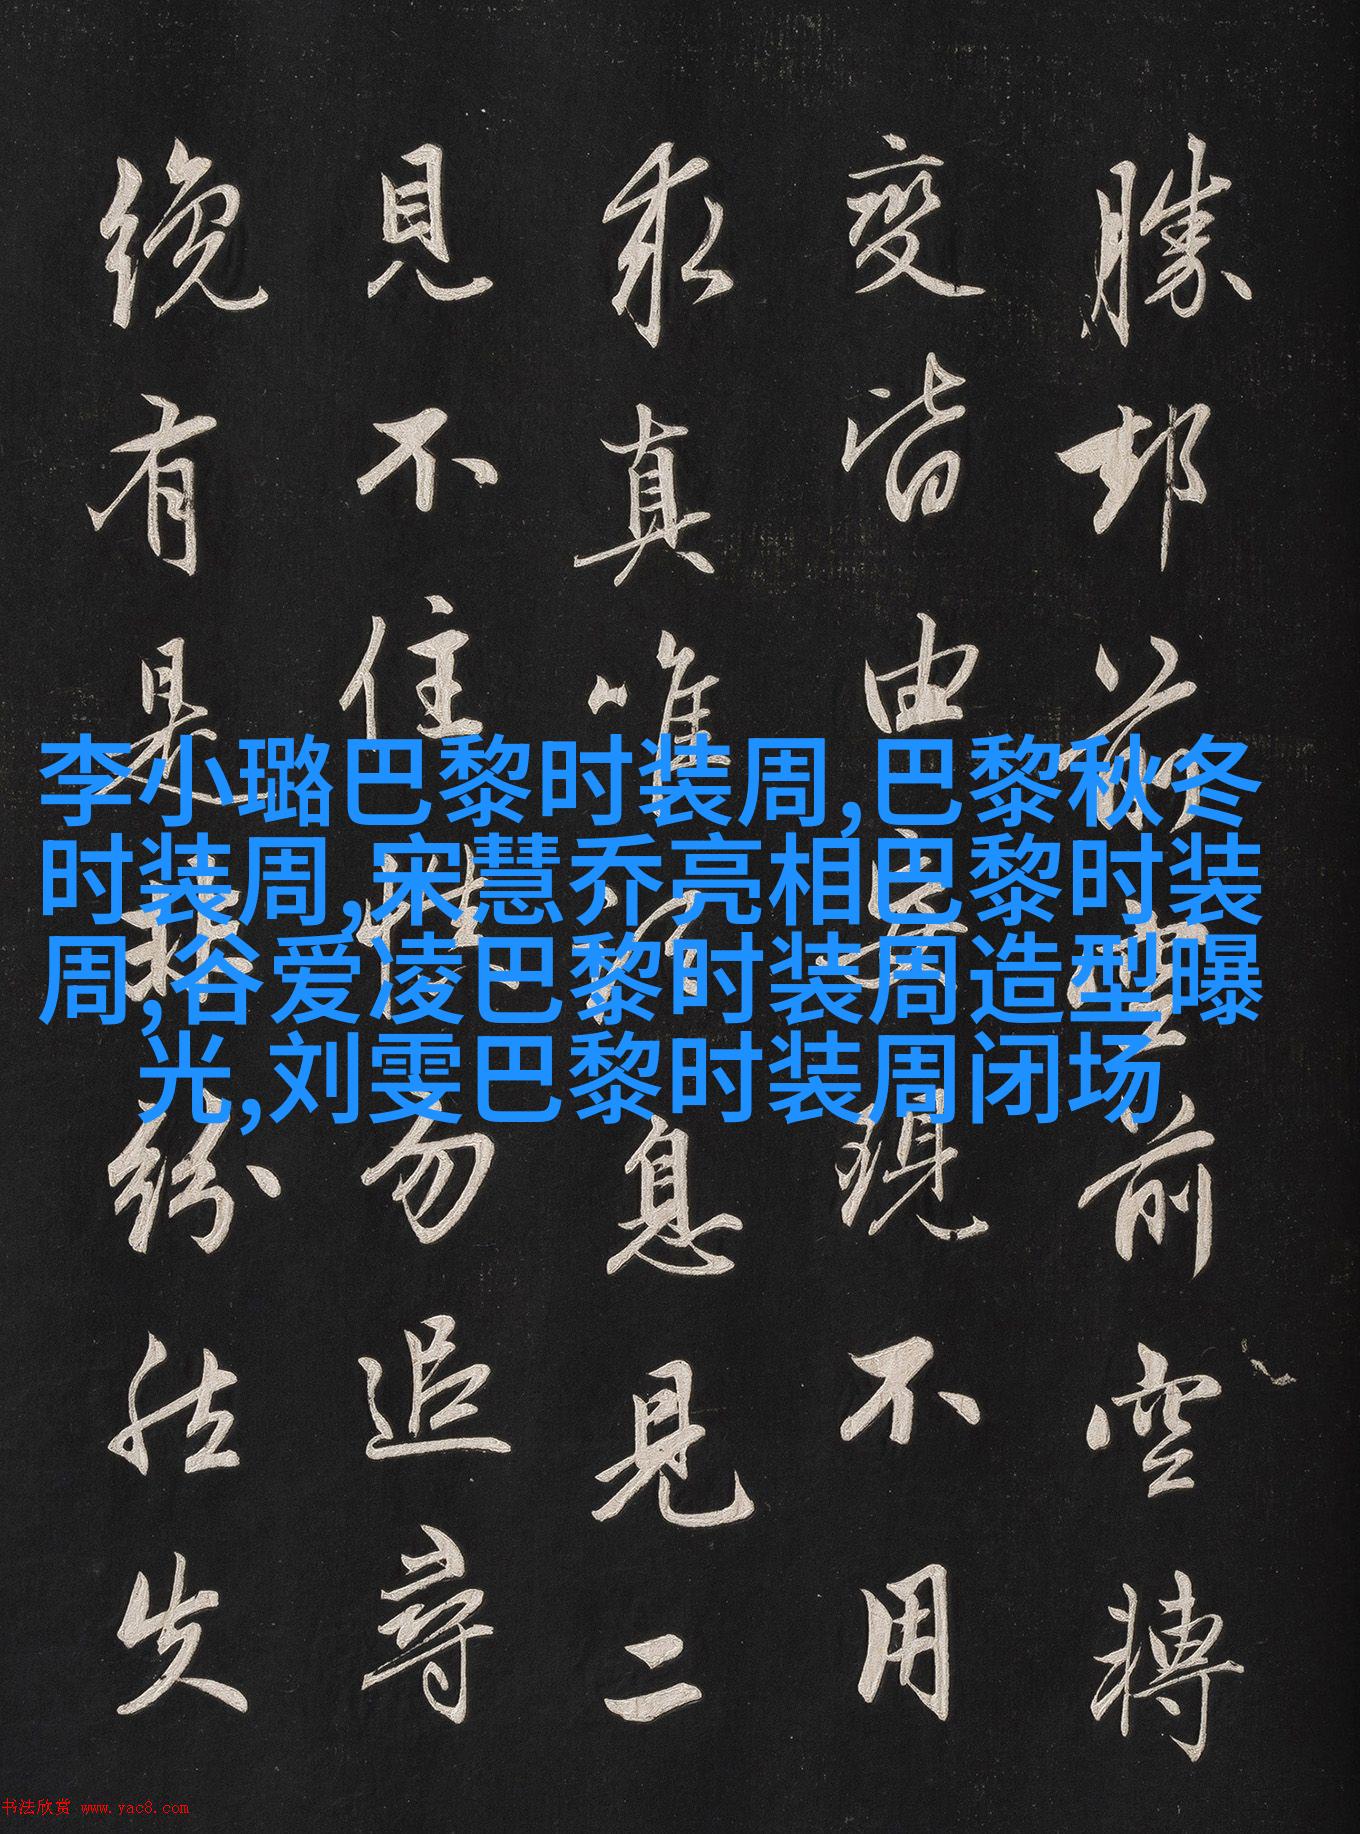 勝却前空前空轉
變皆由妄現不用
求真唯息見二
見不住勿追尋
纔有是紛然失
李小璐巴黎时装周,巴黎秋冬
时装周,宋慧乔亮相巴黎时装
周,谷爱凌巴黎时装周造型曝
光,刘雯巴黎时装周闭场
书法欣赏 www.yac8.com